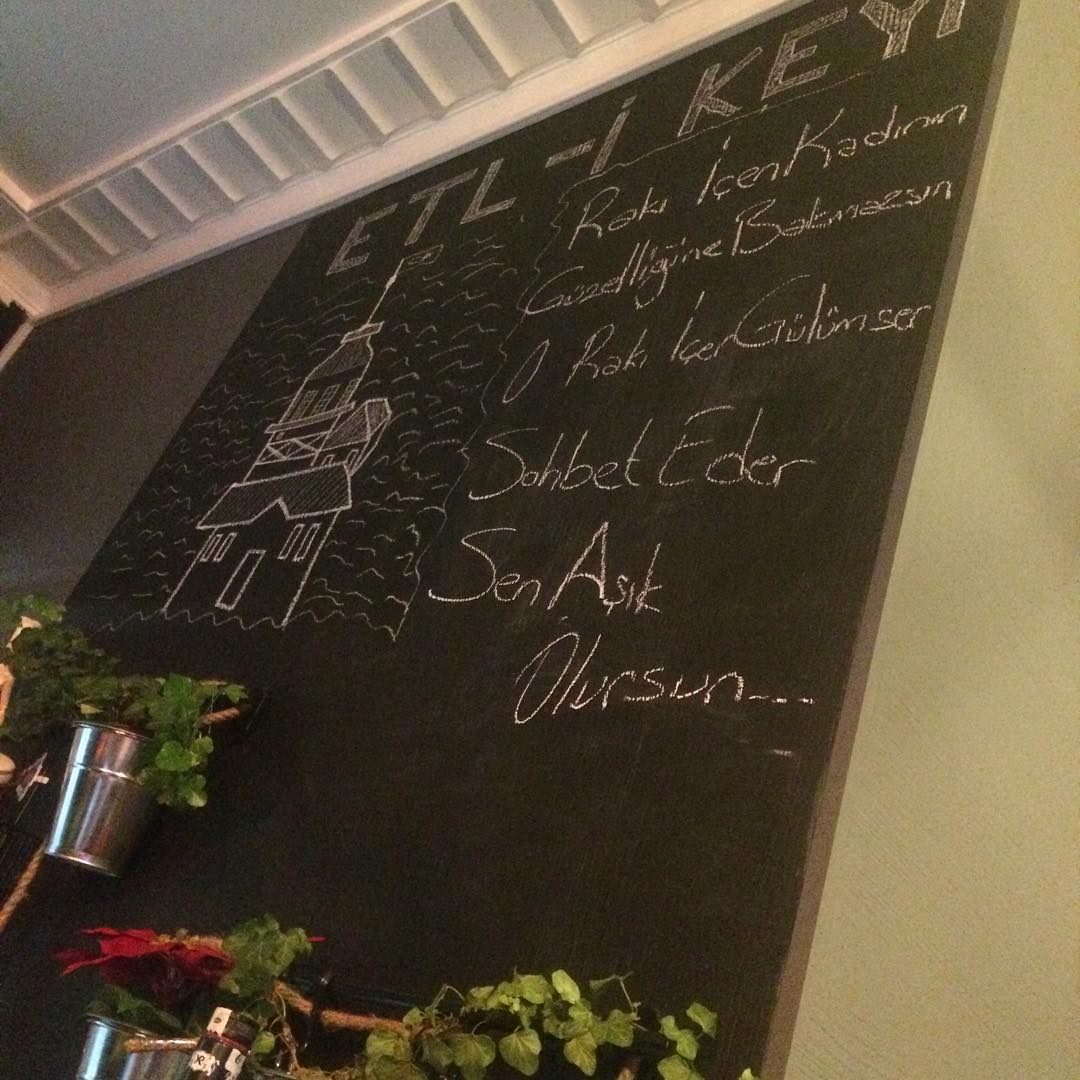 ETL-i KEYİ
Rakı İçen Kadının
Güzelliğine Bakmazsın
O Rakı İçer Gülümser
Sohbet Eder
Sen Aşık
Olursun...